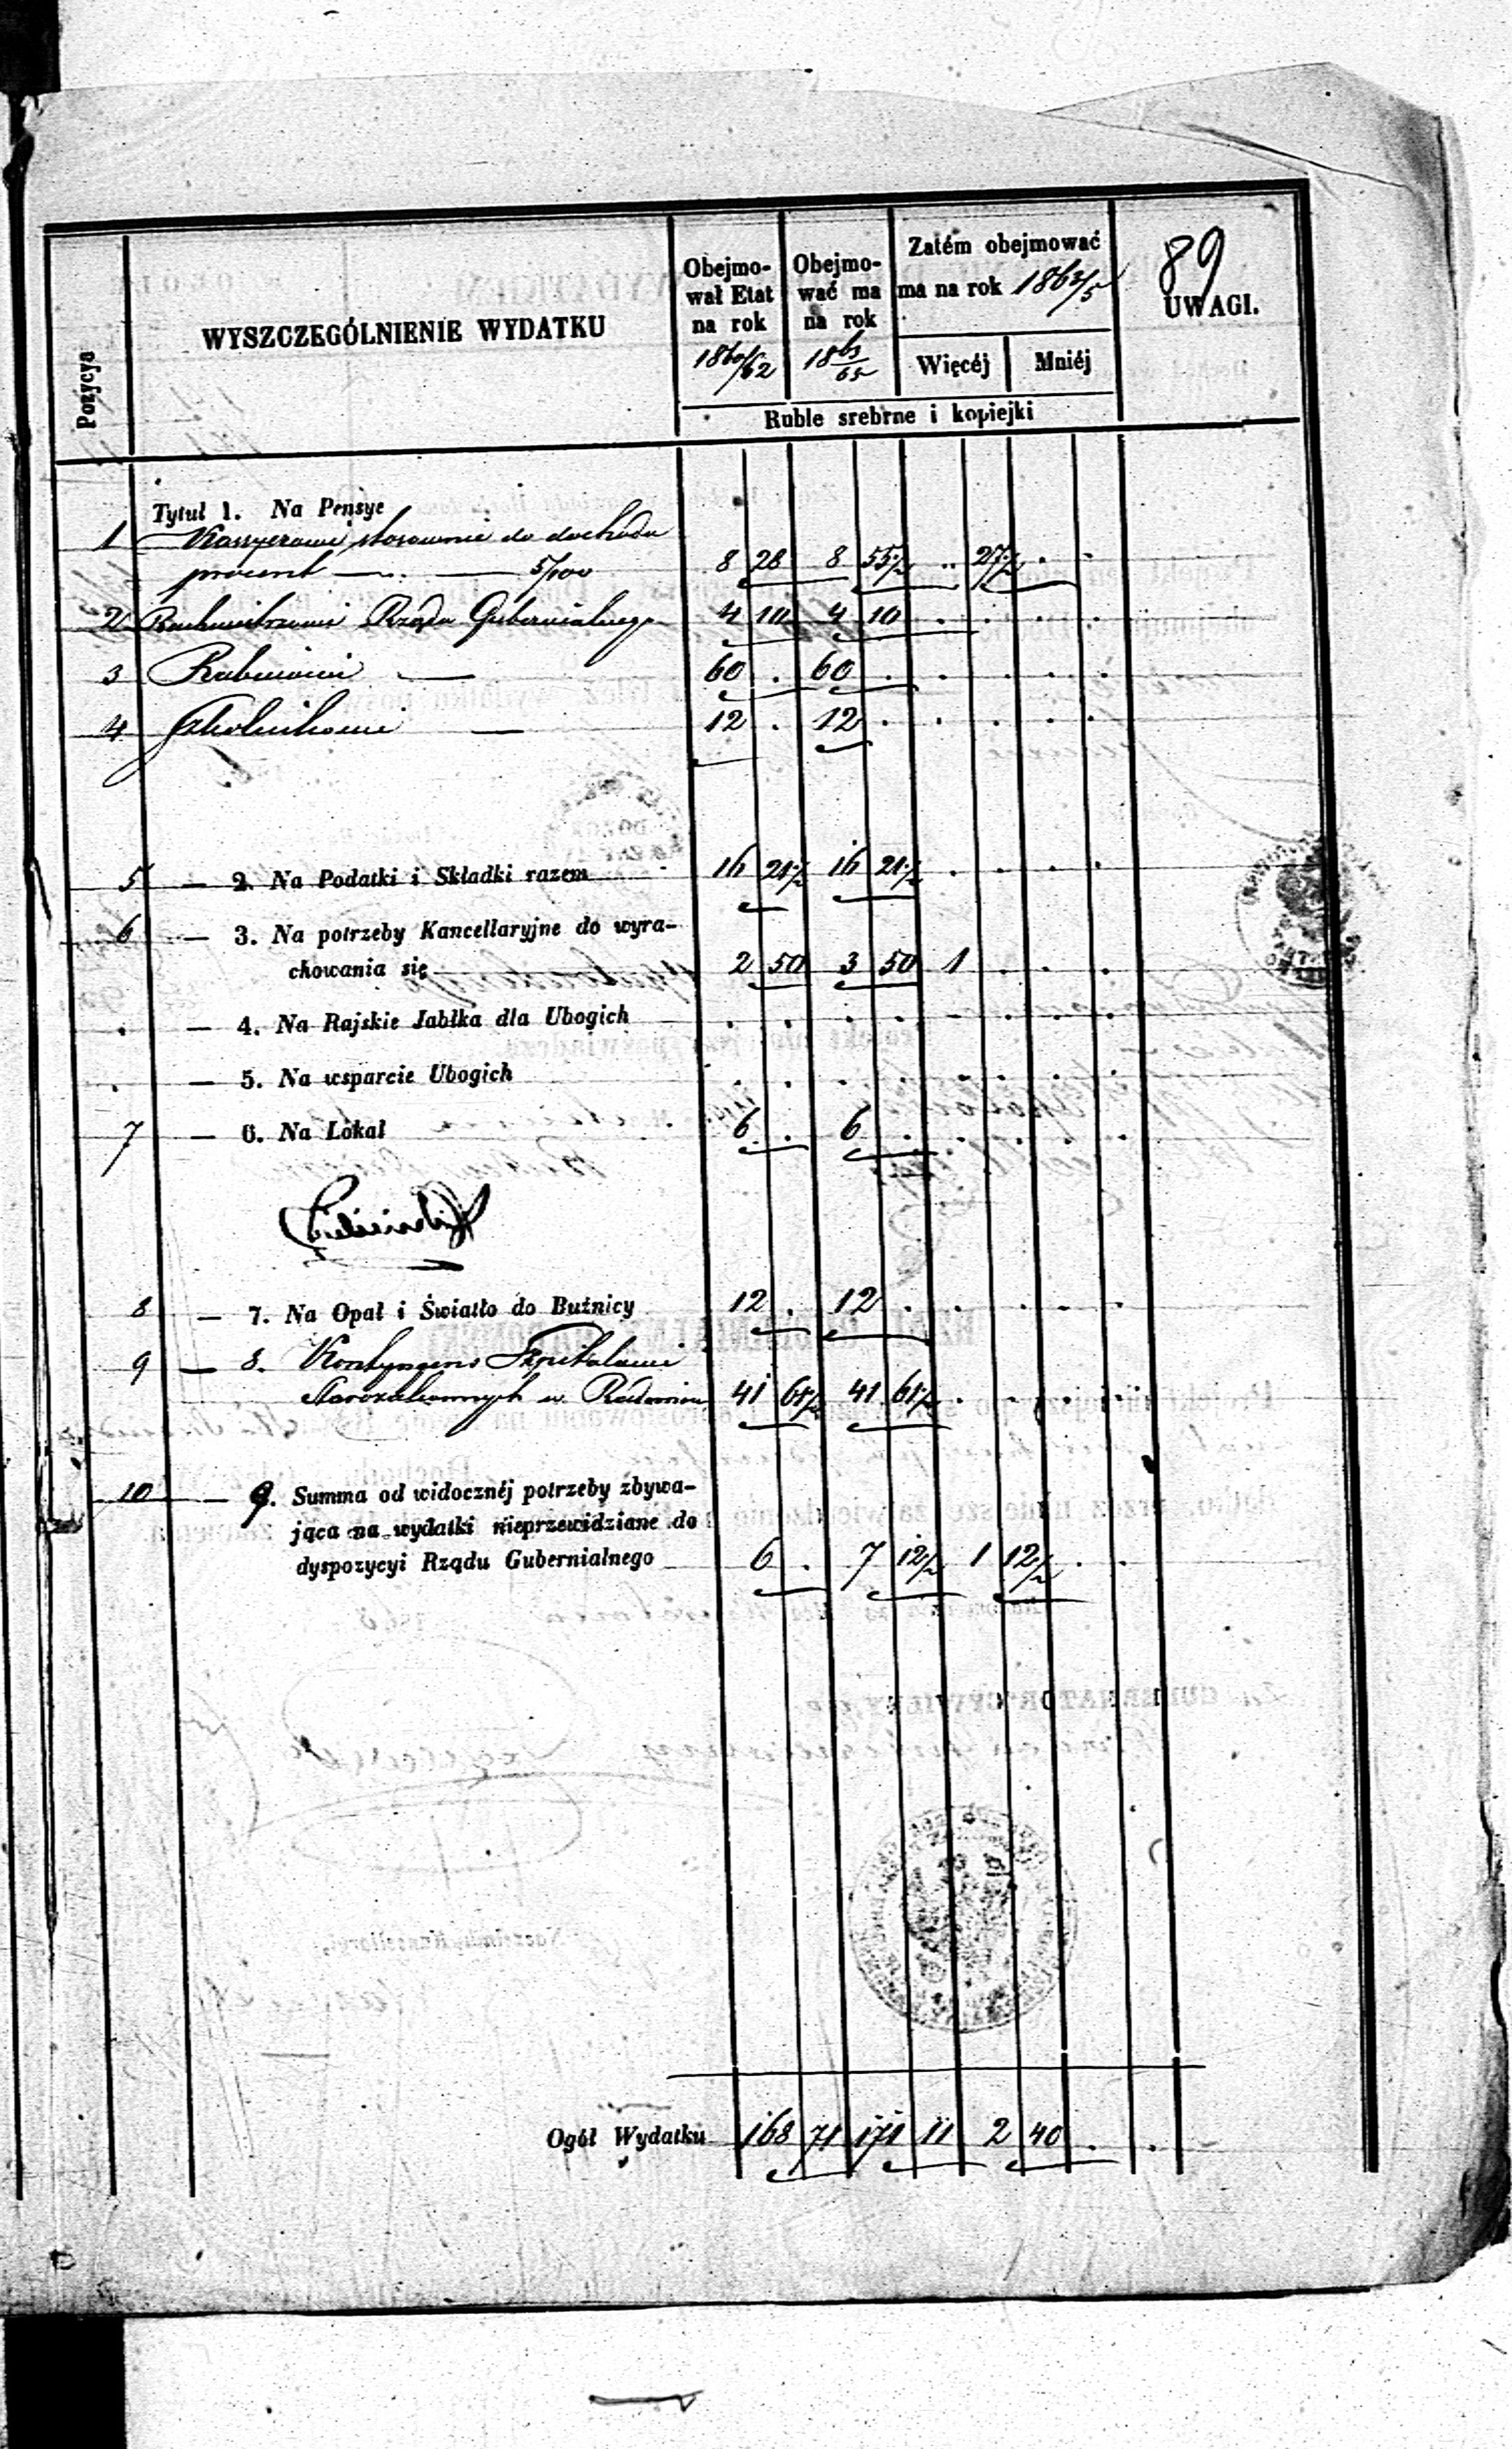 89
Pozycya
WYSZCZEGÓLNIENIE WYDATKU
Obejmo-
wał Etat
na rok
1860/62
Obejmo-
wać ma
na rok
1863/65
Zatém obejmować
ma na rok 186
Więcéj Mniéj
UWAGI.
Ruble srebrne i kopiejki
Tytuł 1. Na Pensye
1 Kassyerowi stosownie do dochodu
procent — 5/100 8 28 8 55½ . . 27½ . .
2 Rachmistrzowi Rządu Gubernialnego 4 10 4 10 . . . .
3 Rabinowi — 60 . 60 . . . . .
4 Szkolnikowi — 12 . 12 . . . . .
5 — 2. Na Podatki i Składki razem 16 21½ 16 21½ . . . .
6 — 3. Na potrzeby Kancellaryjne do wyra-
chowania się 2 50 3 50 1 . . .
. — 4. Na Rajskie Jabłka dla Ubogich . . . . . . . .
. — 5. Na wsparcie Ubogich . . . . . . . .
7 — 6. Na Lokal 6 . 6 . . . . .
8 — 7. Na Opał i Światło do Bużnicy 12 . 12 . . . . .
9 — 8. Kontyngens Szpitalowi
Starozakonnych w Radomiu 41 61½ 41 61½ . . . .
10 — 9. Summa od widocznéj potrzeby zbywa-
jąca na wydatki nieprzewidziane do
dyspozycyi Rządu Gubernialnego 6 . 7 12½ 1 12½ . .
Ogół Wydatku 168 71 171 11 2 40 . .